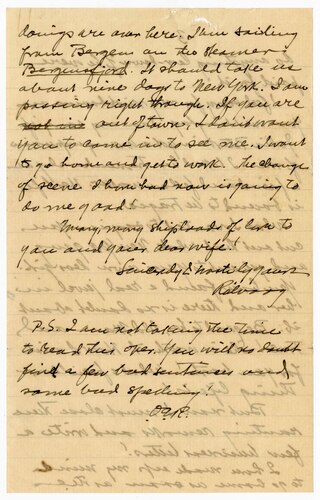 doings are over here. I am sailing
from Bergen on the steamer
Bergensfjord. It should take us
about nine days to New York. I am
passing right through. If you are
not in out of town, I don't want
you to come in to see me. I want
to go home and get to work. The change
of scene I have had now is going to
do me good.
Many, many shiploads of love to
you and your dear wife!
Sincerely & heartily yours
Rölvaag
P.S. I am not taking the time
to read this over. You will no doubt
find a few bad sentences and
some bad spelling!
OER.